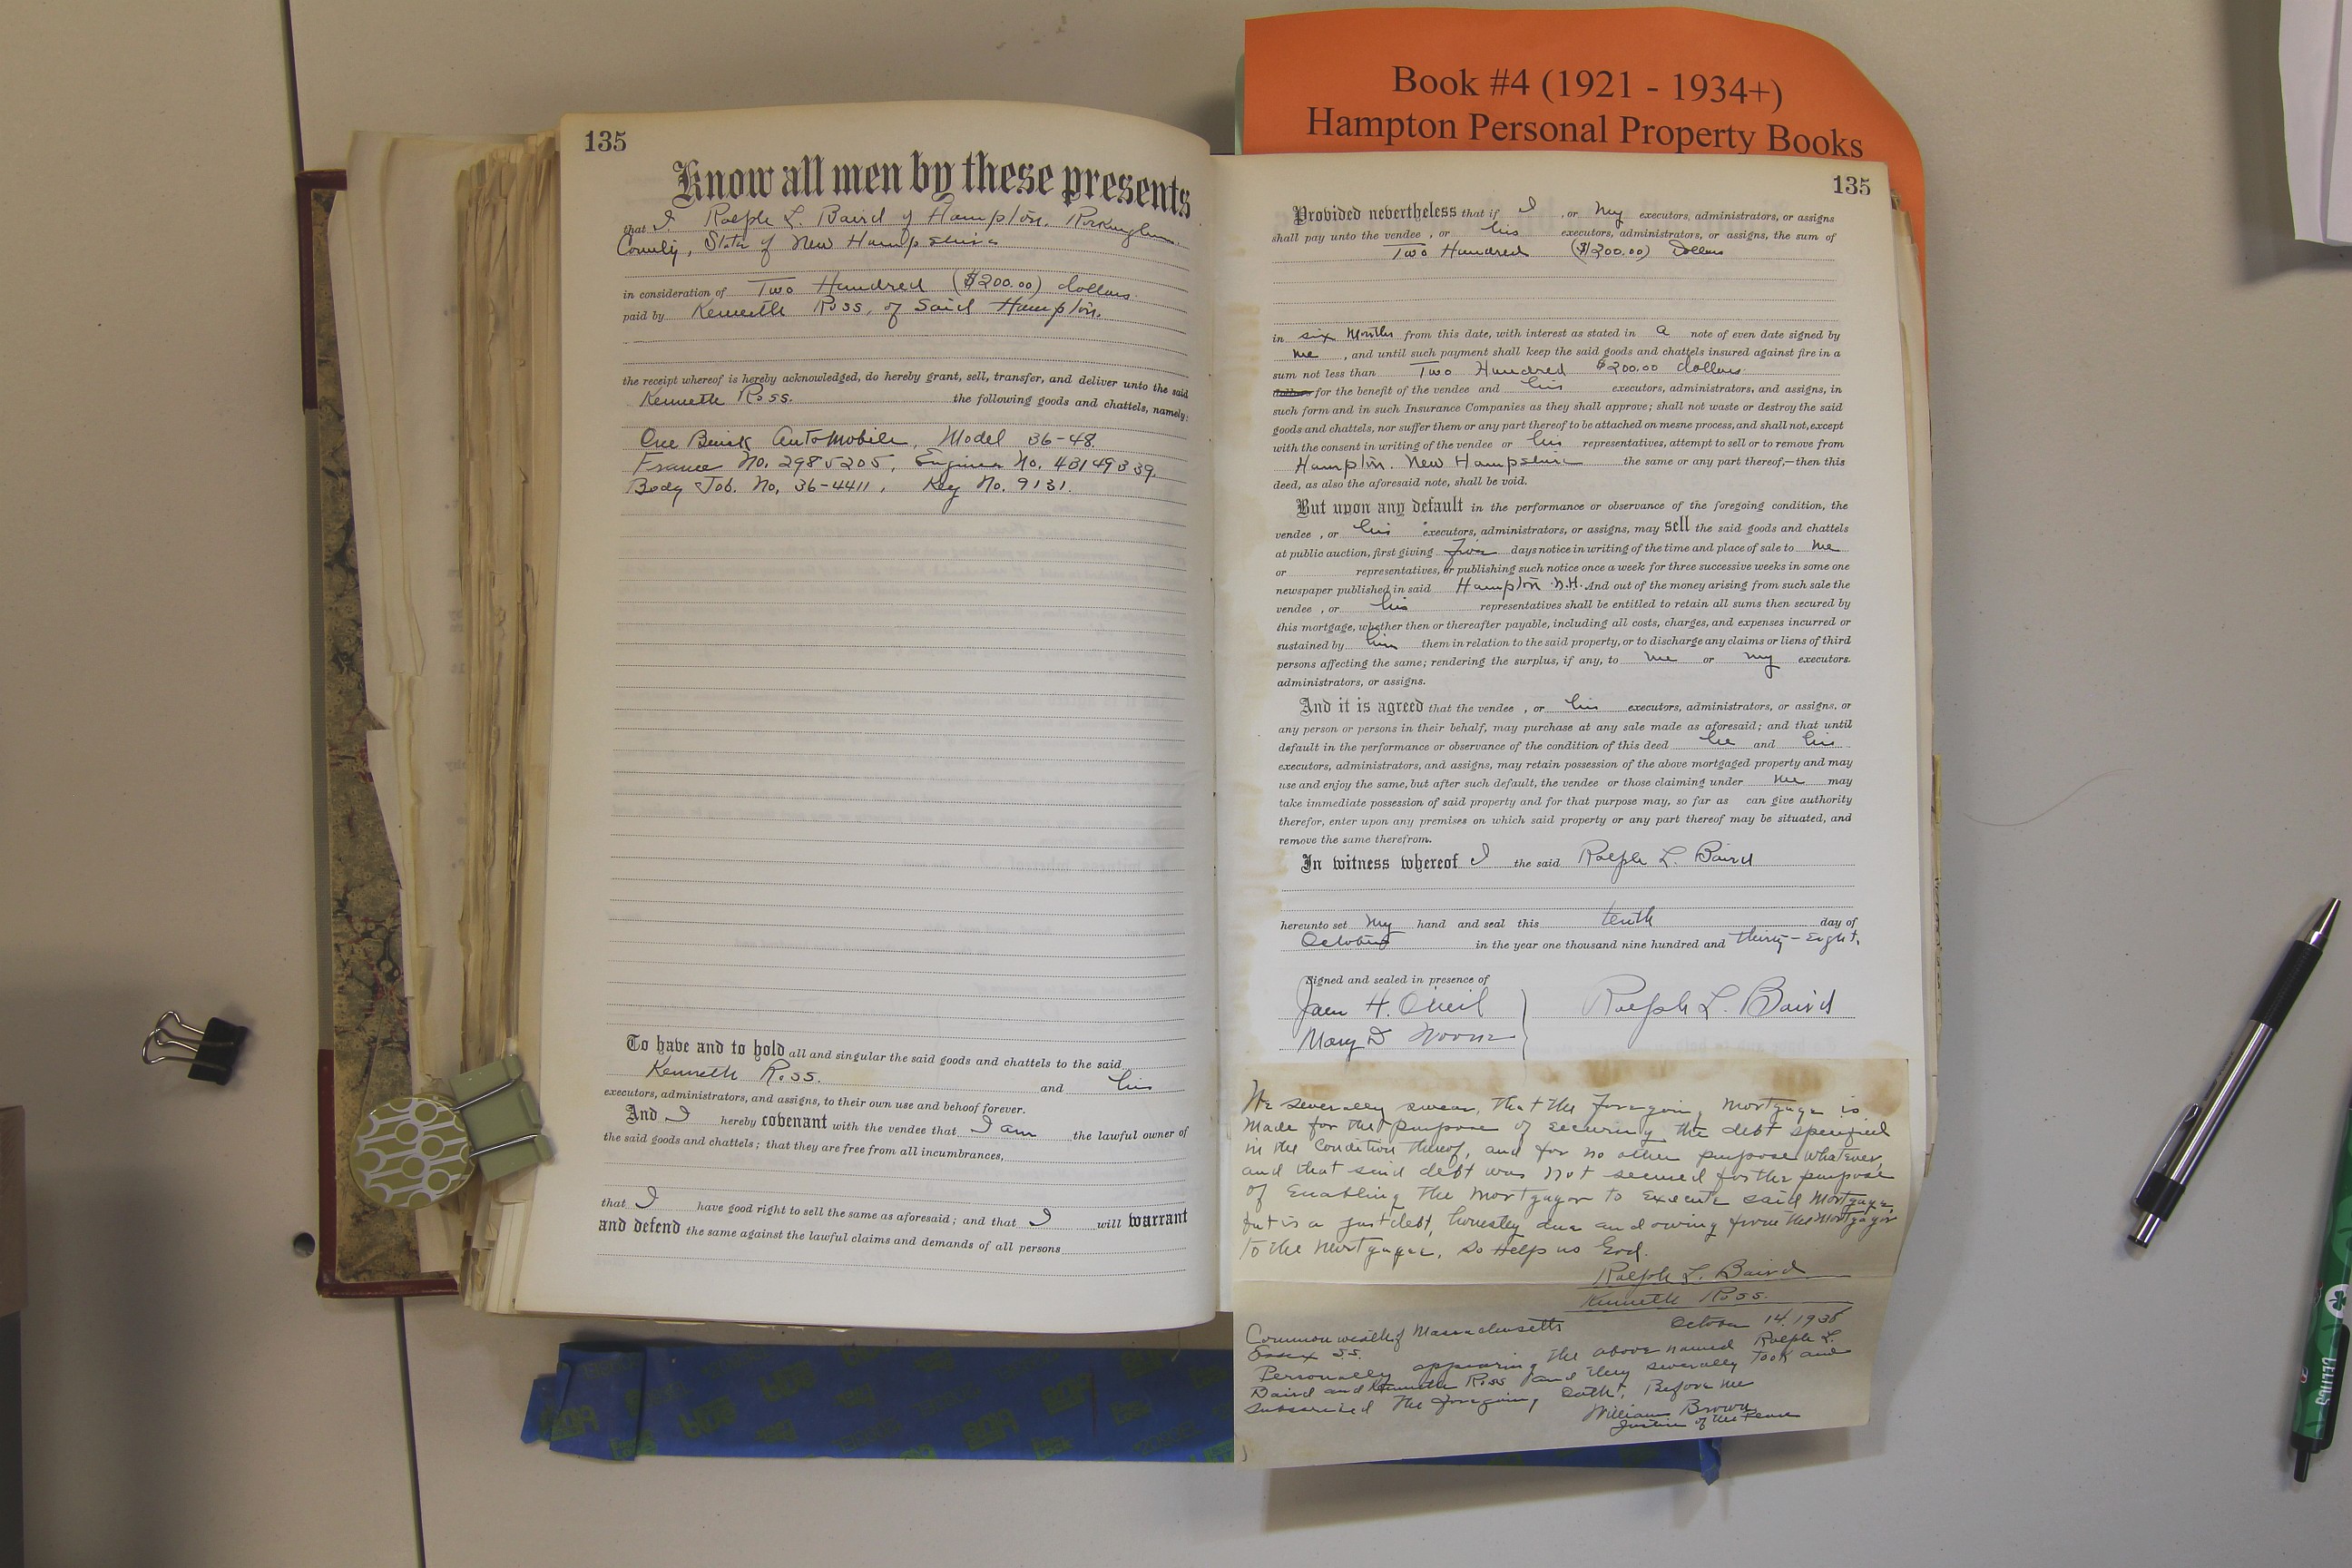 Book #4 (1921 - 1934+)
Hampton Personal Property Books
135
Know all men by these presents
that I Ralph L. Baird of Hampton, Rockingham
County, State of New Hampshire
in consideration of Two Hundred ($200.00) dollars.
paid by Kenneth Ross, of Said Hampton.
the receipt whereof is hereby acknowledged, do hereby grant, sell, transfer, and deliver unto the said
Kenneth Ross. the following goods and chattels, namely:
One Buick Automobile, Model 36-48.
Frame No. 2985205, Engine No. 43149339.
Body Job. No, 36-4411, Key No. 9131.
To have and to hold all and singular the said goods and chattels to the said
Kenneth Ross. and his
executors, administrators, and assigns, to their own use and behoof forever.
And I hereby covenant with the vendee that I am the lawful owner of
the said goods and chattels; that they are free from all incumbrances,
that I have good right to sell the same as aforesaid; and that I will warrant
and defend the same against the lawful claims and demands of all persons
135
Provided nevertheless that if I , or my executors, administrators, or assigns
shall pay unto the vendee , or his executors, administrators, or assigns, the sum of
Two Hundred ($200.00) Dollars
in six Months from this date, with interest as stated in a note of even date signed by
me , and until such payment shall keep the said goods and chattels insured against fire in a
sum not less than Two Hundred $200.00 dollars.
dollars for the benefit of the vendee and his executors, administrators, and assigns, in
such form and in such Insurance Companies as they shall approve; shall not waste or destroy the said
goods and chattels, nor suffer them or any part thereof to be attached on mesne process, and shall not, except
with the consent in writing of the vendee or his representatives, attempt to sell or to remove from
Hampton. New Hampshire the same or any part thereof,—then this
deed, as also the aforesaid note, shall be void.
But upon any default in the performance or observance of the foregoing condition, the
vendee , or his executors, administrators, or assigns, may sell the said goods and chattels
at public auction, first giving five days notice in writing of the time and place of sale to me
or representatives, or publishing such notice once a week for three successive weeks in some one
newspaper published in said Hampton N.H. And out of the money arising from such sale the
vendee , or his representatives shall be entitled to retain all sums then secured by
this mortgage, whether then or thereafter payable, including all costs, charges, and expenses incurred or
sustained by him them in relation to the said property, or to discharge any claims or liens of third
persons affecting the same; rendering the surplus, if any, to me or my executors.
administrators, or assigns.
And it is agreed that the vendee , or his executors, administrators, or assigns, or
any person or persons in their behalf, may purchase at any sale made as aforesaid; and that until
default in the performance or observance of the condition of this deed he and his
executors, administrators, and assigns, may retain possession of the above mortgaged property and may
use and enjoy the same, but after such default, the vendee or those claiming under me may
take immediate possession of said property and for that purpose may, so far as can give authority
therefor, enter upon any premises on which said property or any part thereof may be situated, and
remove the same therefrom.
In witness whereof I the said Ralph L. Baird
hereunto set my hand and seal this tenth day of
October in the year one thousand nine hundred and thirty-eight.
Signed and sealed in presence of
H. O'Neil Ralph L. Baird
Mary D
We severally swear, that the foregoing mortgage is
Made for the purpose of securing the debt specified
in the Condition thereof, and for no other purpose whatever,
and that said debt was not secured for the purpose
of Enabling the Mortgagor to Execute said Mortgage,
but is a just debt, honestly due and owing from the Mortgagor
to the Mortgagee, So Help us God.
Ralph L. Baird
Kenneth Ross.
Commonwealth of Massachusetts October 14, 1938
Essex S.S.
Personally appearing the above named Ralph L.
Baird and Kenneth Ross and they severally took and
subscribed the foregoing oath, Before me
William Brown
Justice of the Peace
CELTICS